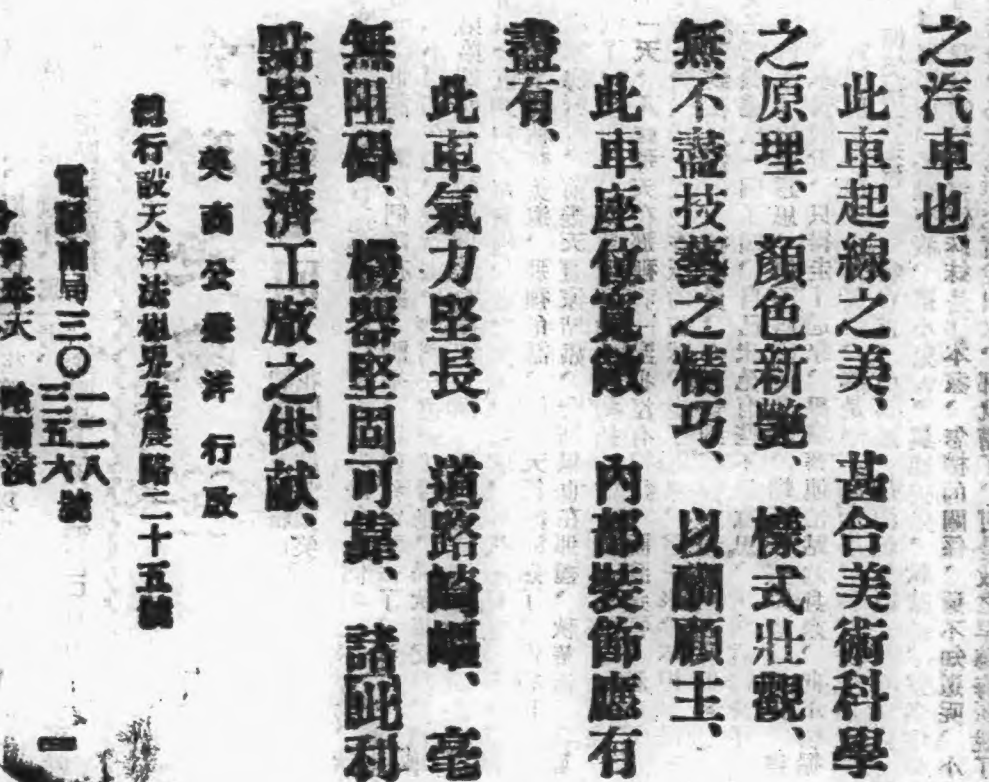 之汽車也、
此車起線之美、甚合美術科學
之原理、顏色新艷、樣式壯觀、
無不盡技藝之精巧、以酬顧主、
此車座位寬敞 內部裝飾應有
盡有、
此車氣力堅長、道路崎嶇、毫
無阻礙、機器堅固可靠、諸此利
點皆道濟工廠之供献、
英商公懋洋行啟
總行設天津法租界先農路二十五號
電話南局三〇一二八
三五六號
分奉天 哈爾濱